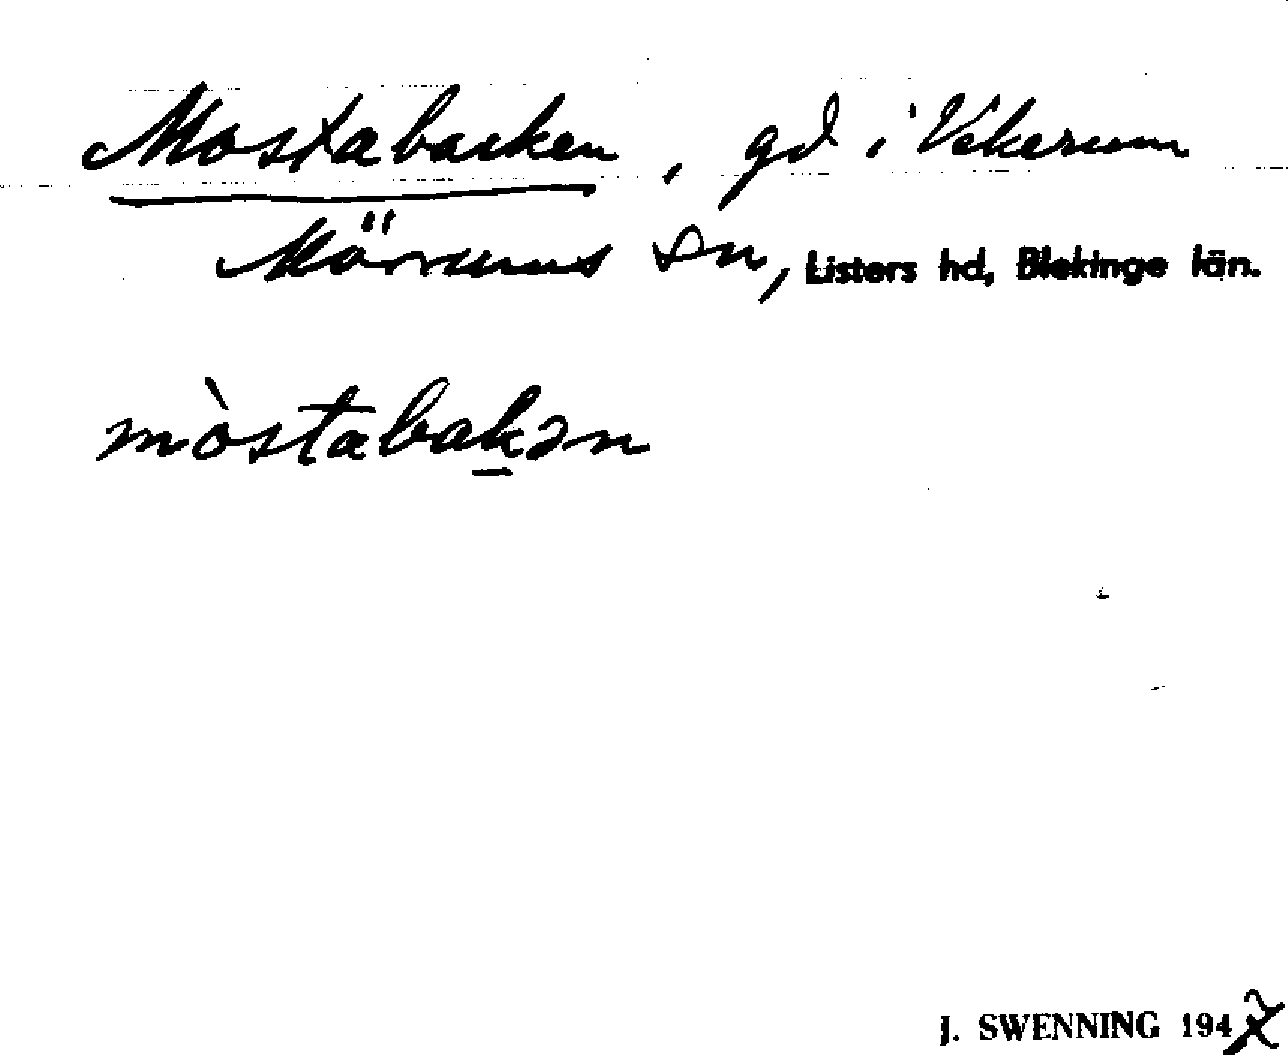 Mostabacken, gd i Vekerum
Mörrums sn, Listers hd, Blekinge län.
mòstabak̲ən
J. SWENNING 1942